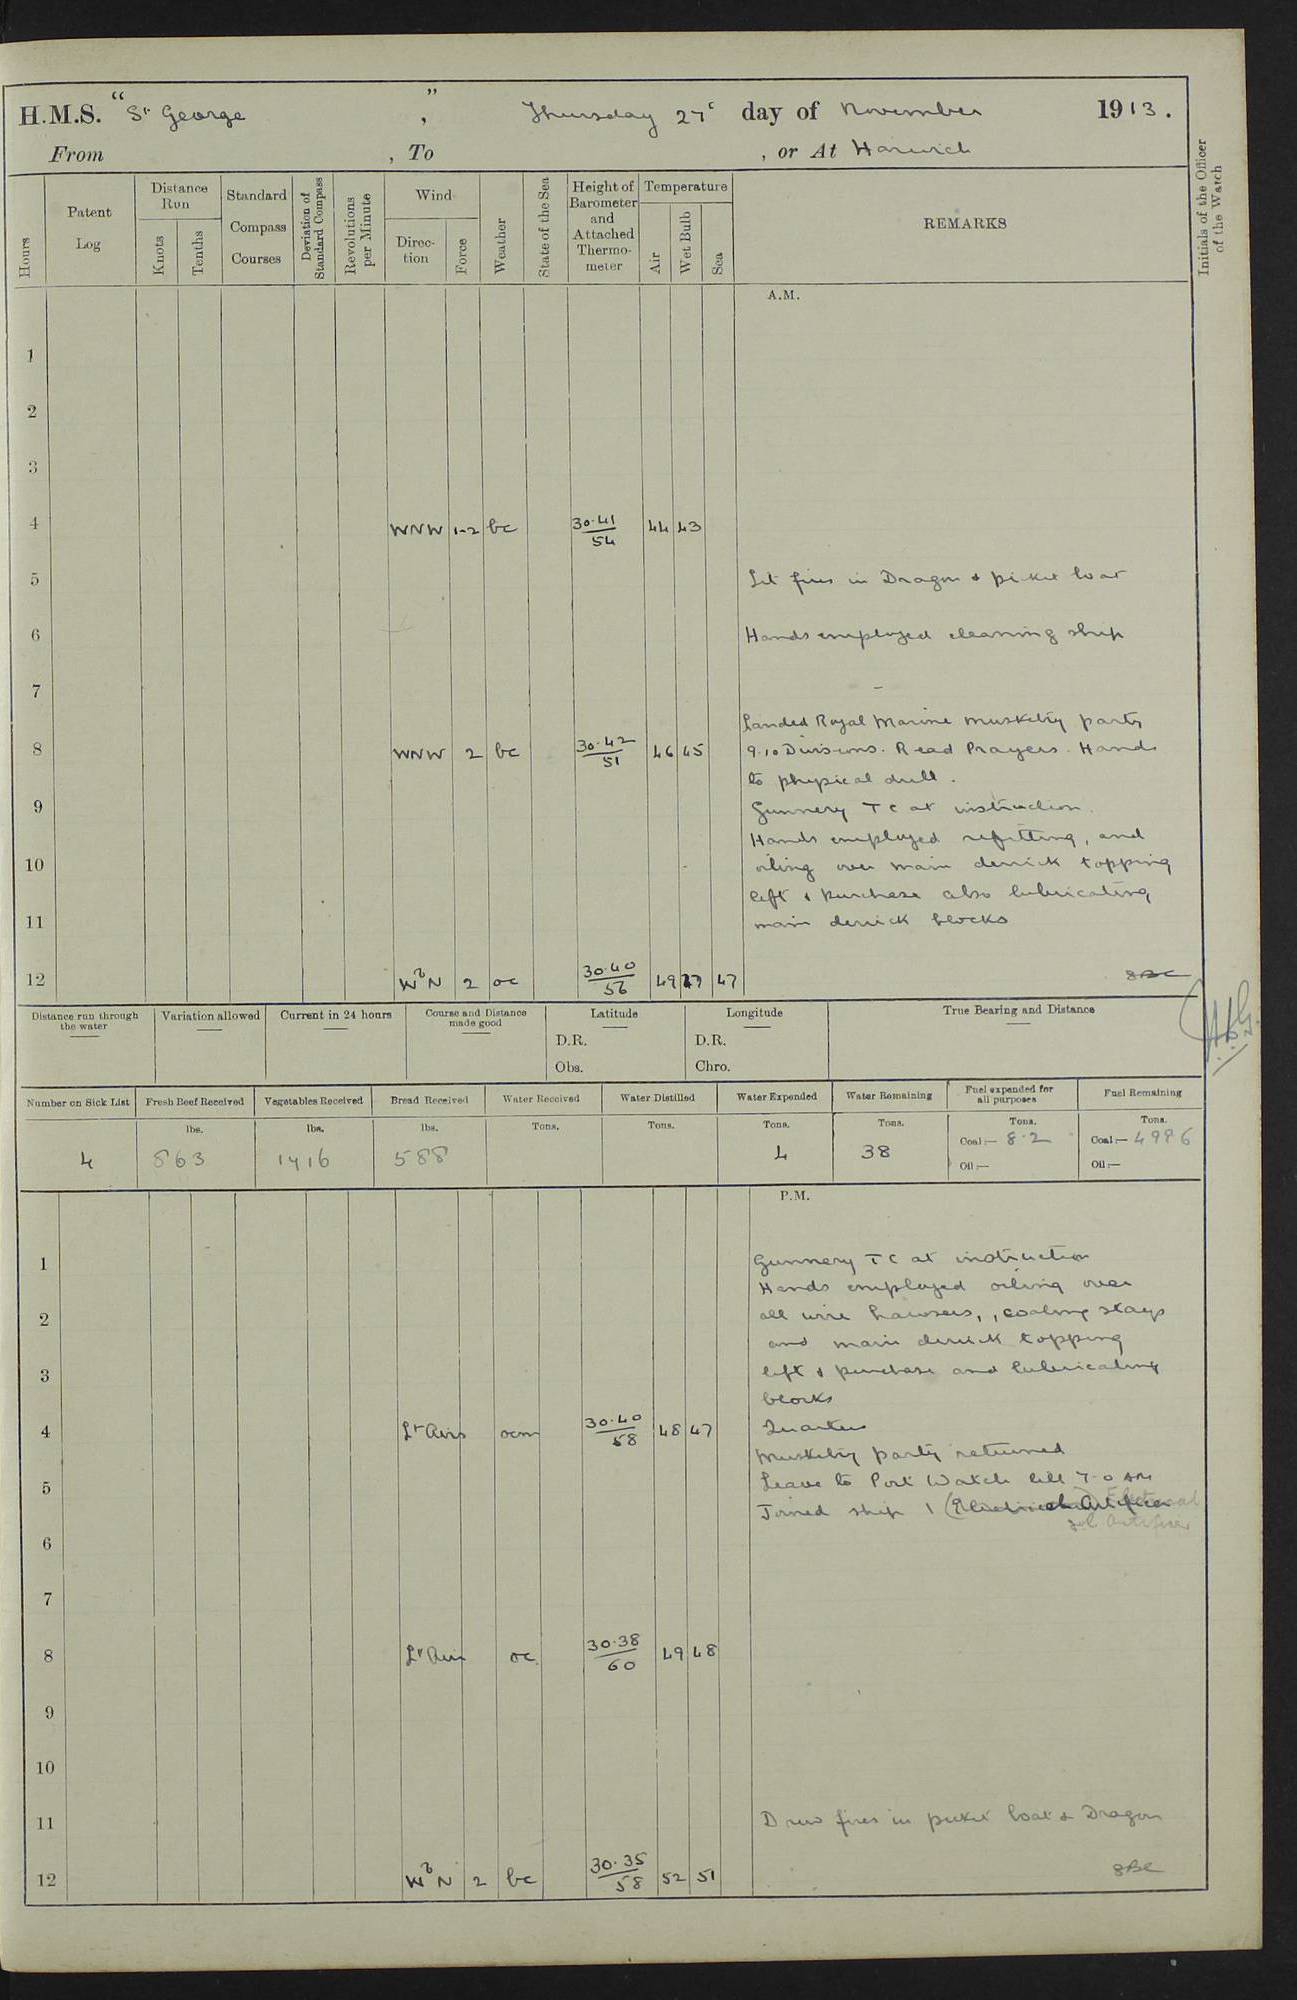 H.M.S. "St George", Thursday 27th day of November 1913.
From , To , or At Harwich
Hours
Patent Log
Distance Run
Knots
Tenths
Standard Compass Courses
Deviation of Standard Compass
Revolutions per Minute
Wind
Direction
Force
Weather
State of the Sea
Height of Barometer and Attached Thermometer
Temperature
Air
Wet Bulb
Sea
REMARKS
Initials of the Officer of the Watch
A.M.
1
2
3
4 WNW 1-2 bc 30.41/54 44 43
5 Lit fires in Dragon & picket boat
6 Hands employed cleaning ship
7
Landed Royal Marine musketry party
8 WNW 2 bc 30.42/51 46 45 9.10 Divisions. Read Prayers. Hands
to physical drill.
9 Gunnery TC at instruction.
Hands employed refitting, and
10 oiling over main derrick topping
lift & purchase also lubricating
11 main derrick blocks
12 WbN 2 oc 30.40/56 49 47 47
Distance run through the water
Variation allowed
Current in 24 hours
Course and Distance made good
Latitude
D.R.
Obs.
Longitude
D.R.
Chro.
True Bearing and Distance
Number on Sick List 4
Fresh Beef Received lbs. 863
Vegetables Received lbs. 1416
Bread Received lbs. 588
Water Received Tons.
Water Distilled Tons.
Water Expended Tons. 4
Water Remaining Tons. 38
Fuel expended for all purposes Tons. Coal:— 8.2 Oil:—
Fuel Remaining Tons. Coal:— 499.6 Oil:—
P.M.
1 Gunnery TC at instruction
Hands employed oiling over
2 all wire hawsers, , coaling stays
and main derrick topping
3 lift & purchase and lubricating
blocks
4 Lt Airs ocm 30.40/58 48 47 Quarters
Musketry party returned
5 Leave to Port Watch till 7.0 AM
Joined ship 1 Electrical
Artificer
6
7
8 Lt Airs oc 30.38/60 49 48
9
10
11 Drew fires in picket boat & Dragon
12 WbN 2 bc 30.35/58 52 51